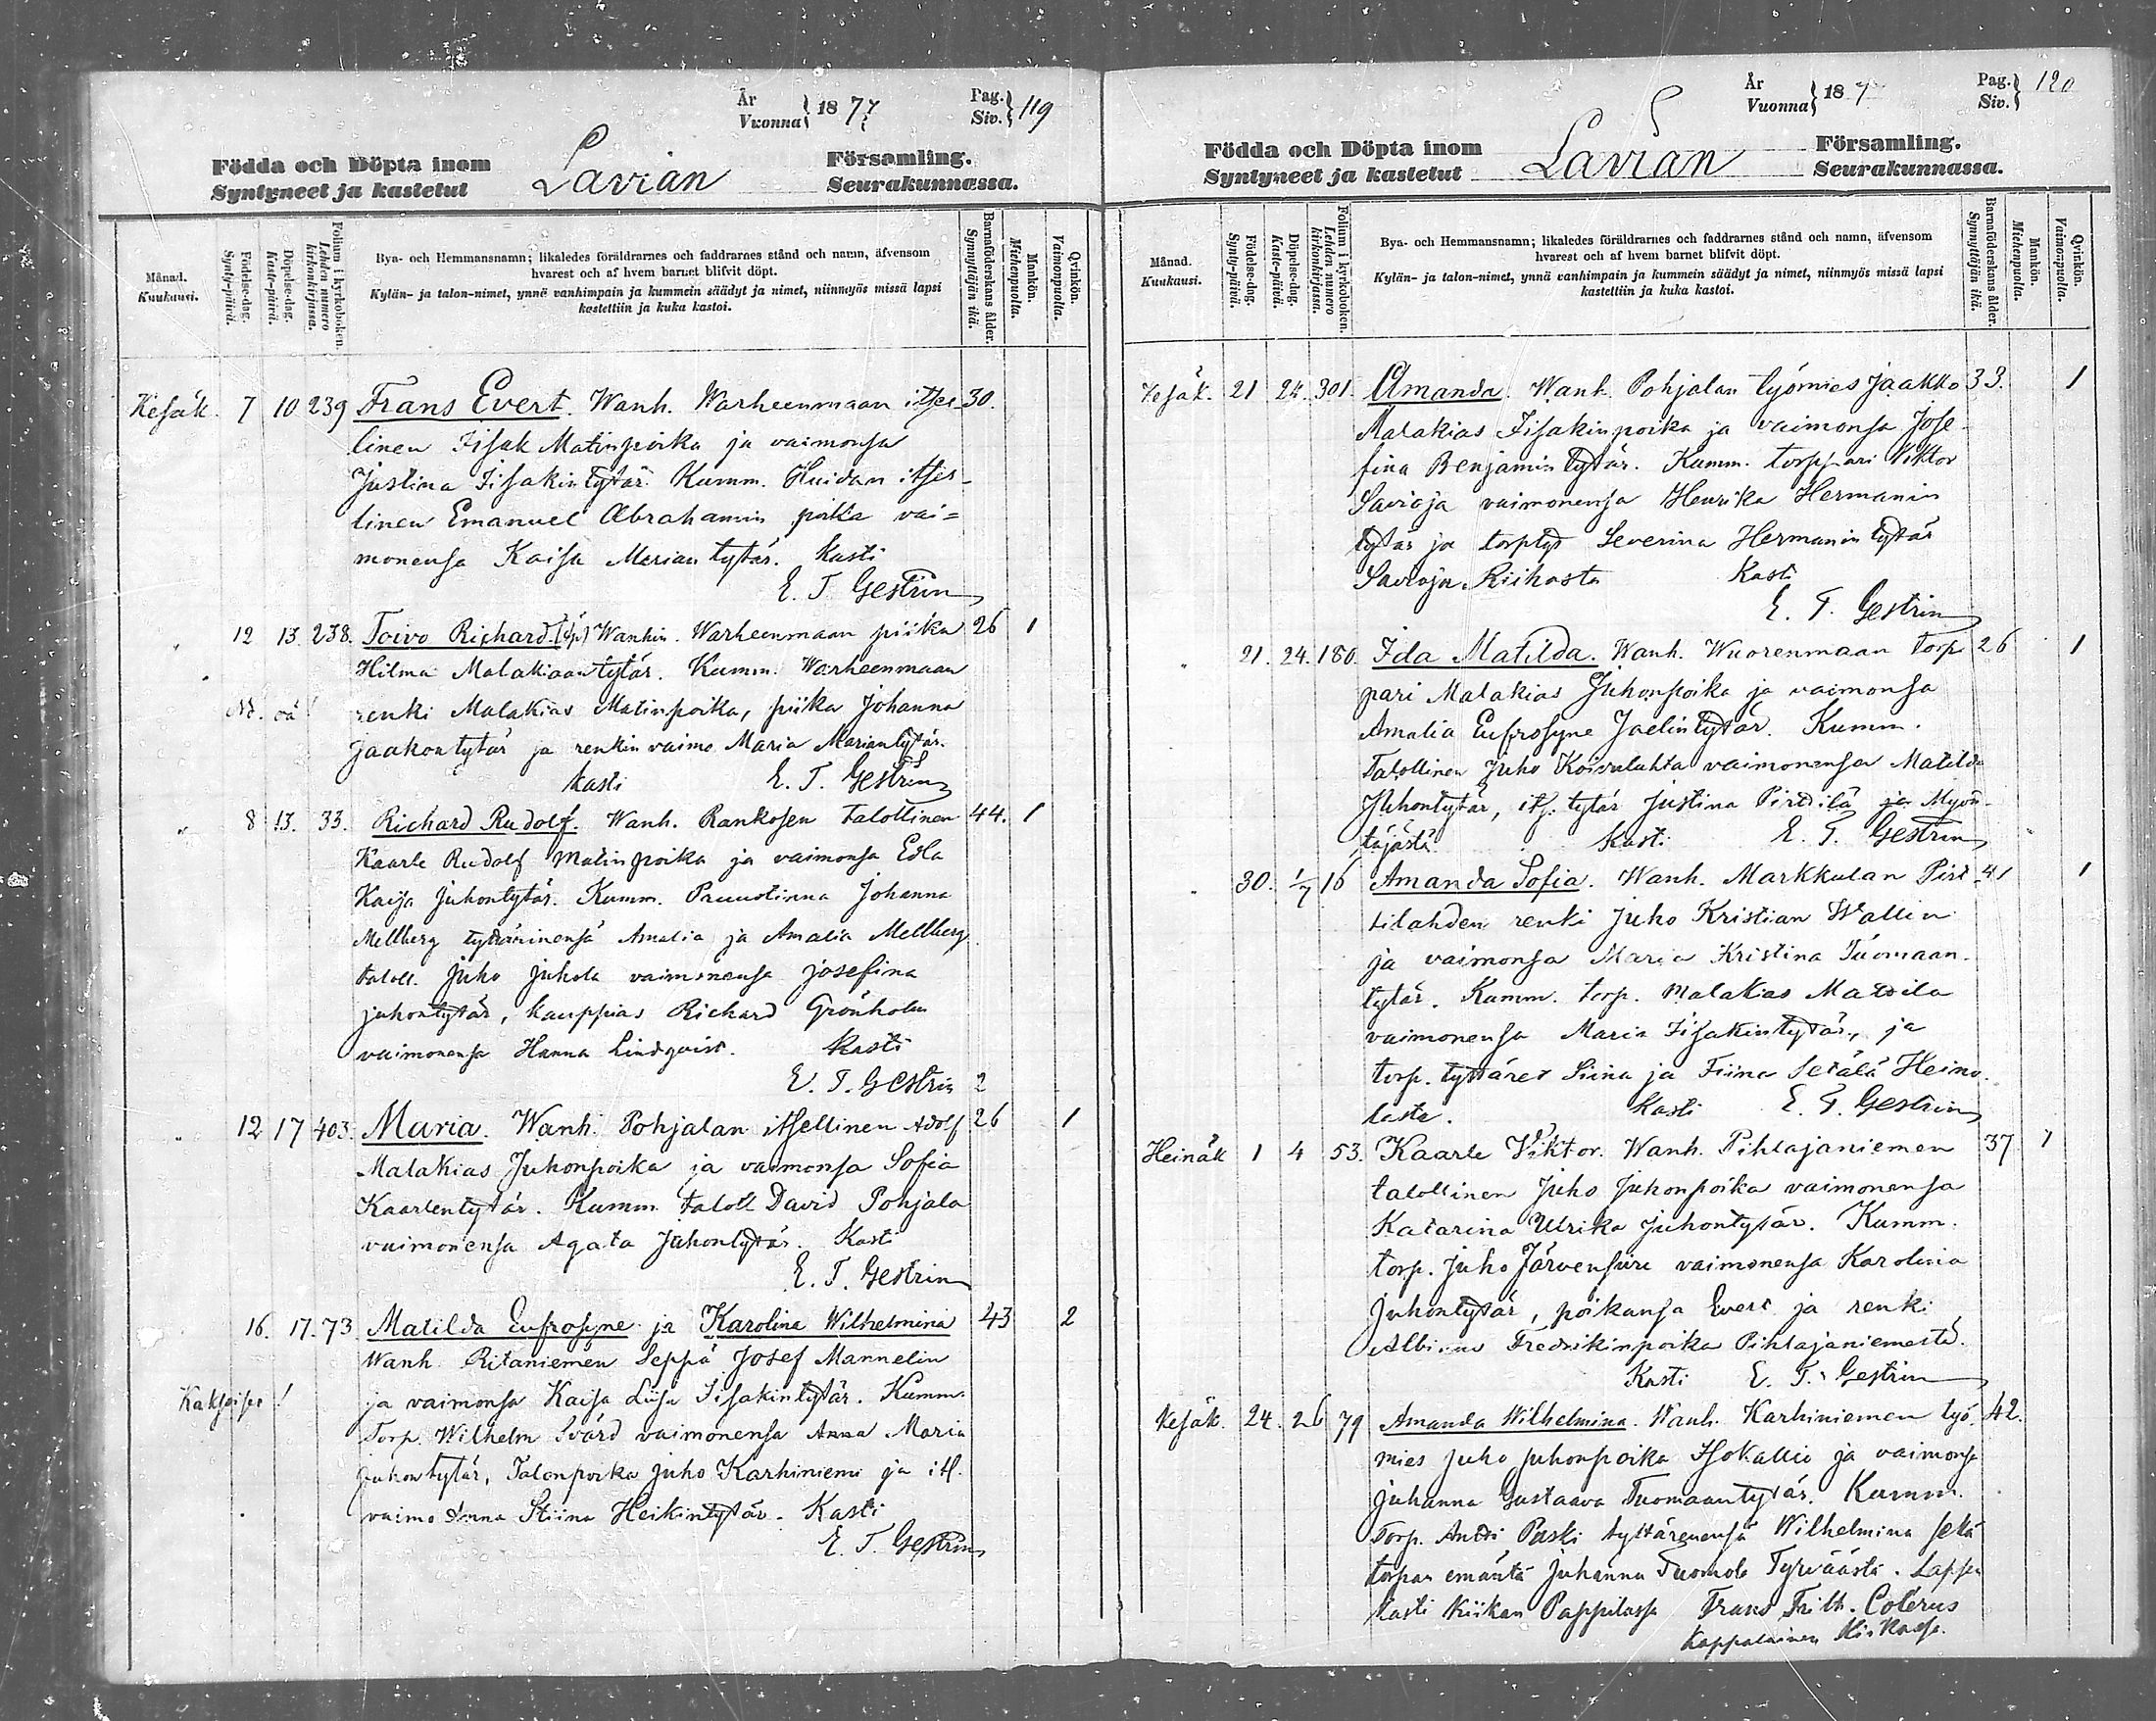 År
Vuonna } 18 77
Pag.
Siv. } 119
Födda och Döpta inom
Syntyneet ja kastetut
Lavian
Församling.
Seurakunnassa.
Månad.
Kuukausi.
Födelse-dag.
Synty-päivä.
Döpelse-dag.
Kaste-päivä.
Folium i kyrkoboken.
Lehden numero kirkonkirjassa.
Bya- och Hemmansnamn; likaledes föräldrarnes och faddrarnes stånd och namn, äfvensom
hvarest och af hvem barnet blifvit döpt.
Kylän- ja talon-nimet, ynnä vanhimpain ja kummein säädyt ja nimet, niinmyös missä lapsi
kastettiin ja kuka kastoi.
Barnaföderskans ålder.
Synnyttäjän ikä.
Mankön.
Miehenpuolia.
Qvinkön.
Vaimonpuolia.
Kesäk. 7 10 239 Frans Evert. Wanh. Warheenmaan itsel- 30.
linen Iisak Matinpoika ja vaimonsa
Justina Iisakintytär. Kumm. Huidan itsel-
linen Emanuel Abrahamin poika vai=
monensa Kaisa Marian tytär. Kasti
E. T. Gestrin
" 12 13. 238. Toivo Richard. (äp) Wanhin. Warheenmaan piika 26 1
Hilma Malakiaantytär. Kumm. Warheenmaan
renki Malakias Matinpoika, piika Johanna
Jaakontytär ja renkin vaimo Maria Mariantytär.
Kasti E. T. Gestrin
" 8 13. 33. Richard Rudolf. Wanh. Rankosen talollinen 44. 1
Kaarle Rudolf Matinpoika ja vaimonsa Edla
Kaisa Juhontytär. Kumm. Pruustinna Johanna
Mellberg tyttärinensä Amalia ja Amalia Mellberg
taloll. Juho Juhola vaimonensa Josefina
Juhontytär, kauppias Richard Grönholm
vaimonensa Hanna Lindqvist. Kasti
E. T. Gestrin 2
" 12 17 403. Maria. Wanh. Pohjalan itsellinen Adolf 26 1
Malakias Juhonpoika ja vaimonsa Sofia
Kaarlentytär. Kumm. taloll David Pohjala
vaimonensa Agata Juhontytär. Kasti
E. T. Gestrin
16. 17. 73 Matilda Eufrosyne ja Karolina Wilhelmina 43 2
Wanh. Ritaniemen Seppä Josef Mannelin
Kaksoiset! ja vaimonsa Kaisa Liisa Iisakintytär. Kumm.
Torp. Wilhelm Svärd vaimonensa Anna Maria
Juhontytär, Talonpoika Juho Karhiniemi ja itl.
vaimo Anna Stiina Heikintytär. Kasti
E. T. Gestrin
År
Vuonna } 18 7
Pag.
Siv. } 120
Födda och Döpta inom
Syntyneet ja kastetut
Lavian
Församling.
Seurakunnassa.
Månad.
Kuukausi.
Födelse-dag.
Synty-päivä.
Döpelse-dag.
Kaste-päivä.
Folium i kyrkoboken.
Lehden numero kirkonkirjassa.
Bya- och Hemmansnamn; likaledes föräldrarnes och faddrarnes stånd och namn, äfvensom
hvarest och af hvem barnet blifvit döpt.
Kylän- ja talon-nimet, ynnä vanhimpain ja kummein säädyt ja nimet, niinmyös missä lapsi
kastettiin ja kuka kastoi.
Barnaföderskans ålder.
Synnyttäjän ikä.
Mankön.
Miehenpuolia.
Qvinkön.
Vaimonpuolia.
Kesäk. 21 24. 301. Amanda. Wanh. Pohjalan työmies Jaakko 33. 1
Malakias Iisakinpoika ja vaimonsa Jose-
fina Benjamintytär. Kumm. torppari Viktor
Savioja vaimonensa Henrika Hermanin
tytär ja torptyt Severina Hermanin tytär
Savioja Riihosta Kasti
E. T. Gestrin
" 21. 24. 180. Ida Matilda. Wanh. Wuorenmaan torp 26 1
pari Malakias Juhonpoika ja vaimonsa
Amalia Eufrosyne Joelintytär. Kumm.
Talollinen Juho Koivulahta vaimonensa Matilda
Juhontytär, its. tytär Justina Pirttilä ja Myön-
täjästä Kasti E. T. Gestrin
" 30. 1/7 16 Amanda Sofia. Wanh. Markkulan Pirt- 41 1
tilahden renki Juho Kristian Wallin
ja vaimonsa Maria Kristina Tuomaan-
tytär. Kumm. torp. Malakias Mattila
vaimonensa Maria Iisakintytär, ja
torp. tyttäret Siina ja Fiina Setälä Heino-
lasta. Kasti E. T. Gestrin
Heinäk 1 4 53. Kaarle Viktor. Wanh. Pihlajaniemen 37 1
talollinen Juho Juhonpoika vaimonensa
Katarina Ulrika Juhontytär. Kumm.
torp. Juho Järvensivu vaimonensa Karolina
Juhontytär, poikansa Evert ja renki
Albinus Fredrikinpoika Pihlajaniemestä.
Kasti E. T. Gestrin
Kesäk. 24. 26 79 Amanda Wilhelmina. Wanh. Karhiniemen työ- 42.
mies Juho Juhonpoika Isokallio ja vaimonsa
Juhanna Gustaava Tuomaantytär. Kumm.
Torp. Antti Paski tyttärenensä Wilhelmina sekä
torpan emäntä Juhanna Tuomola Tyrväästä. Lapsen
kasti Kiikan Pappilassa Frans Frith. Colerus
Kappalainen Kiikassa.